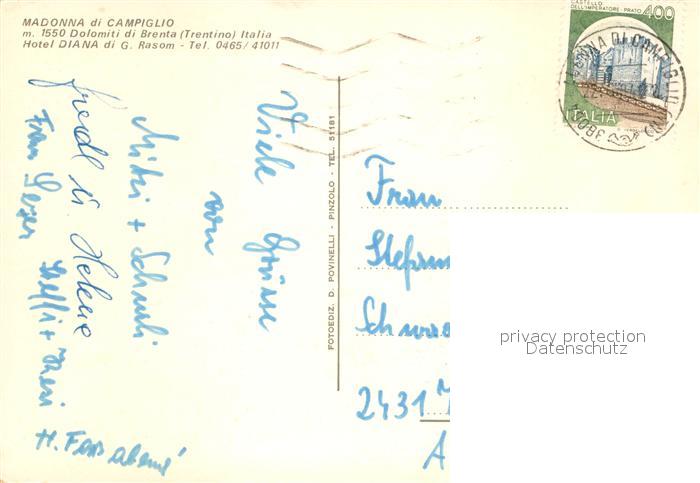 MADONNA di CAMPIGLIO
m. 1550 Dolomiti di Brenta (Trentino) Italia
Hotel DIANA di G. Rasom - Tel. 0465/41011
CASTELLO
DELL'IMPERATORE - PRATO
400
ITALIA
MADONNA DI CAMPIGLIO
38084
FOTOEDIZ. D. POVINELLI - PINZOLO - TEL. 51181
Viele Grüsse
von
Mitzi + Schurli
Friedl u. Helene
Frau
Steffi + Resi
H.
Frau
Stefan
Schwa
2431
A
privacy protection
Datenschutz